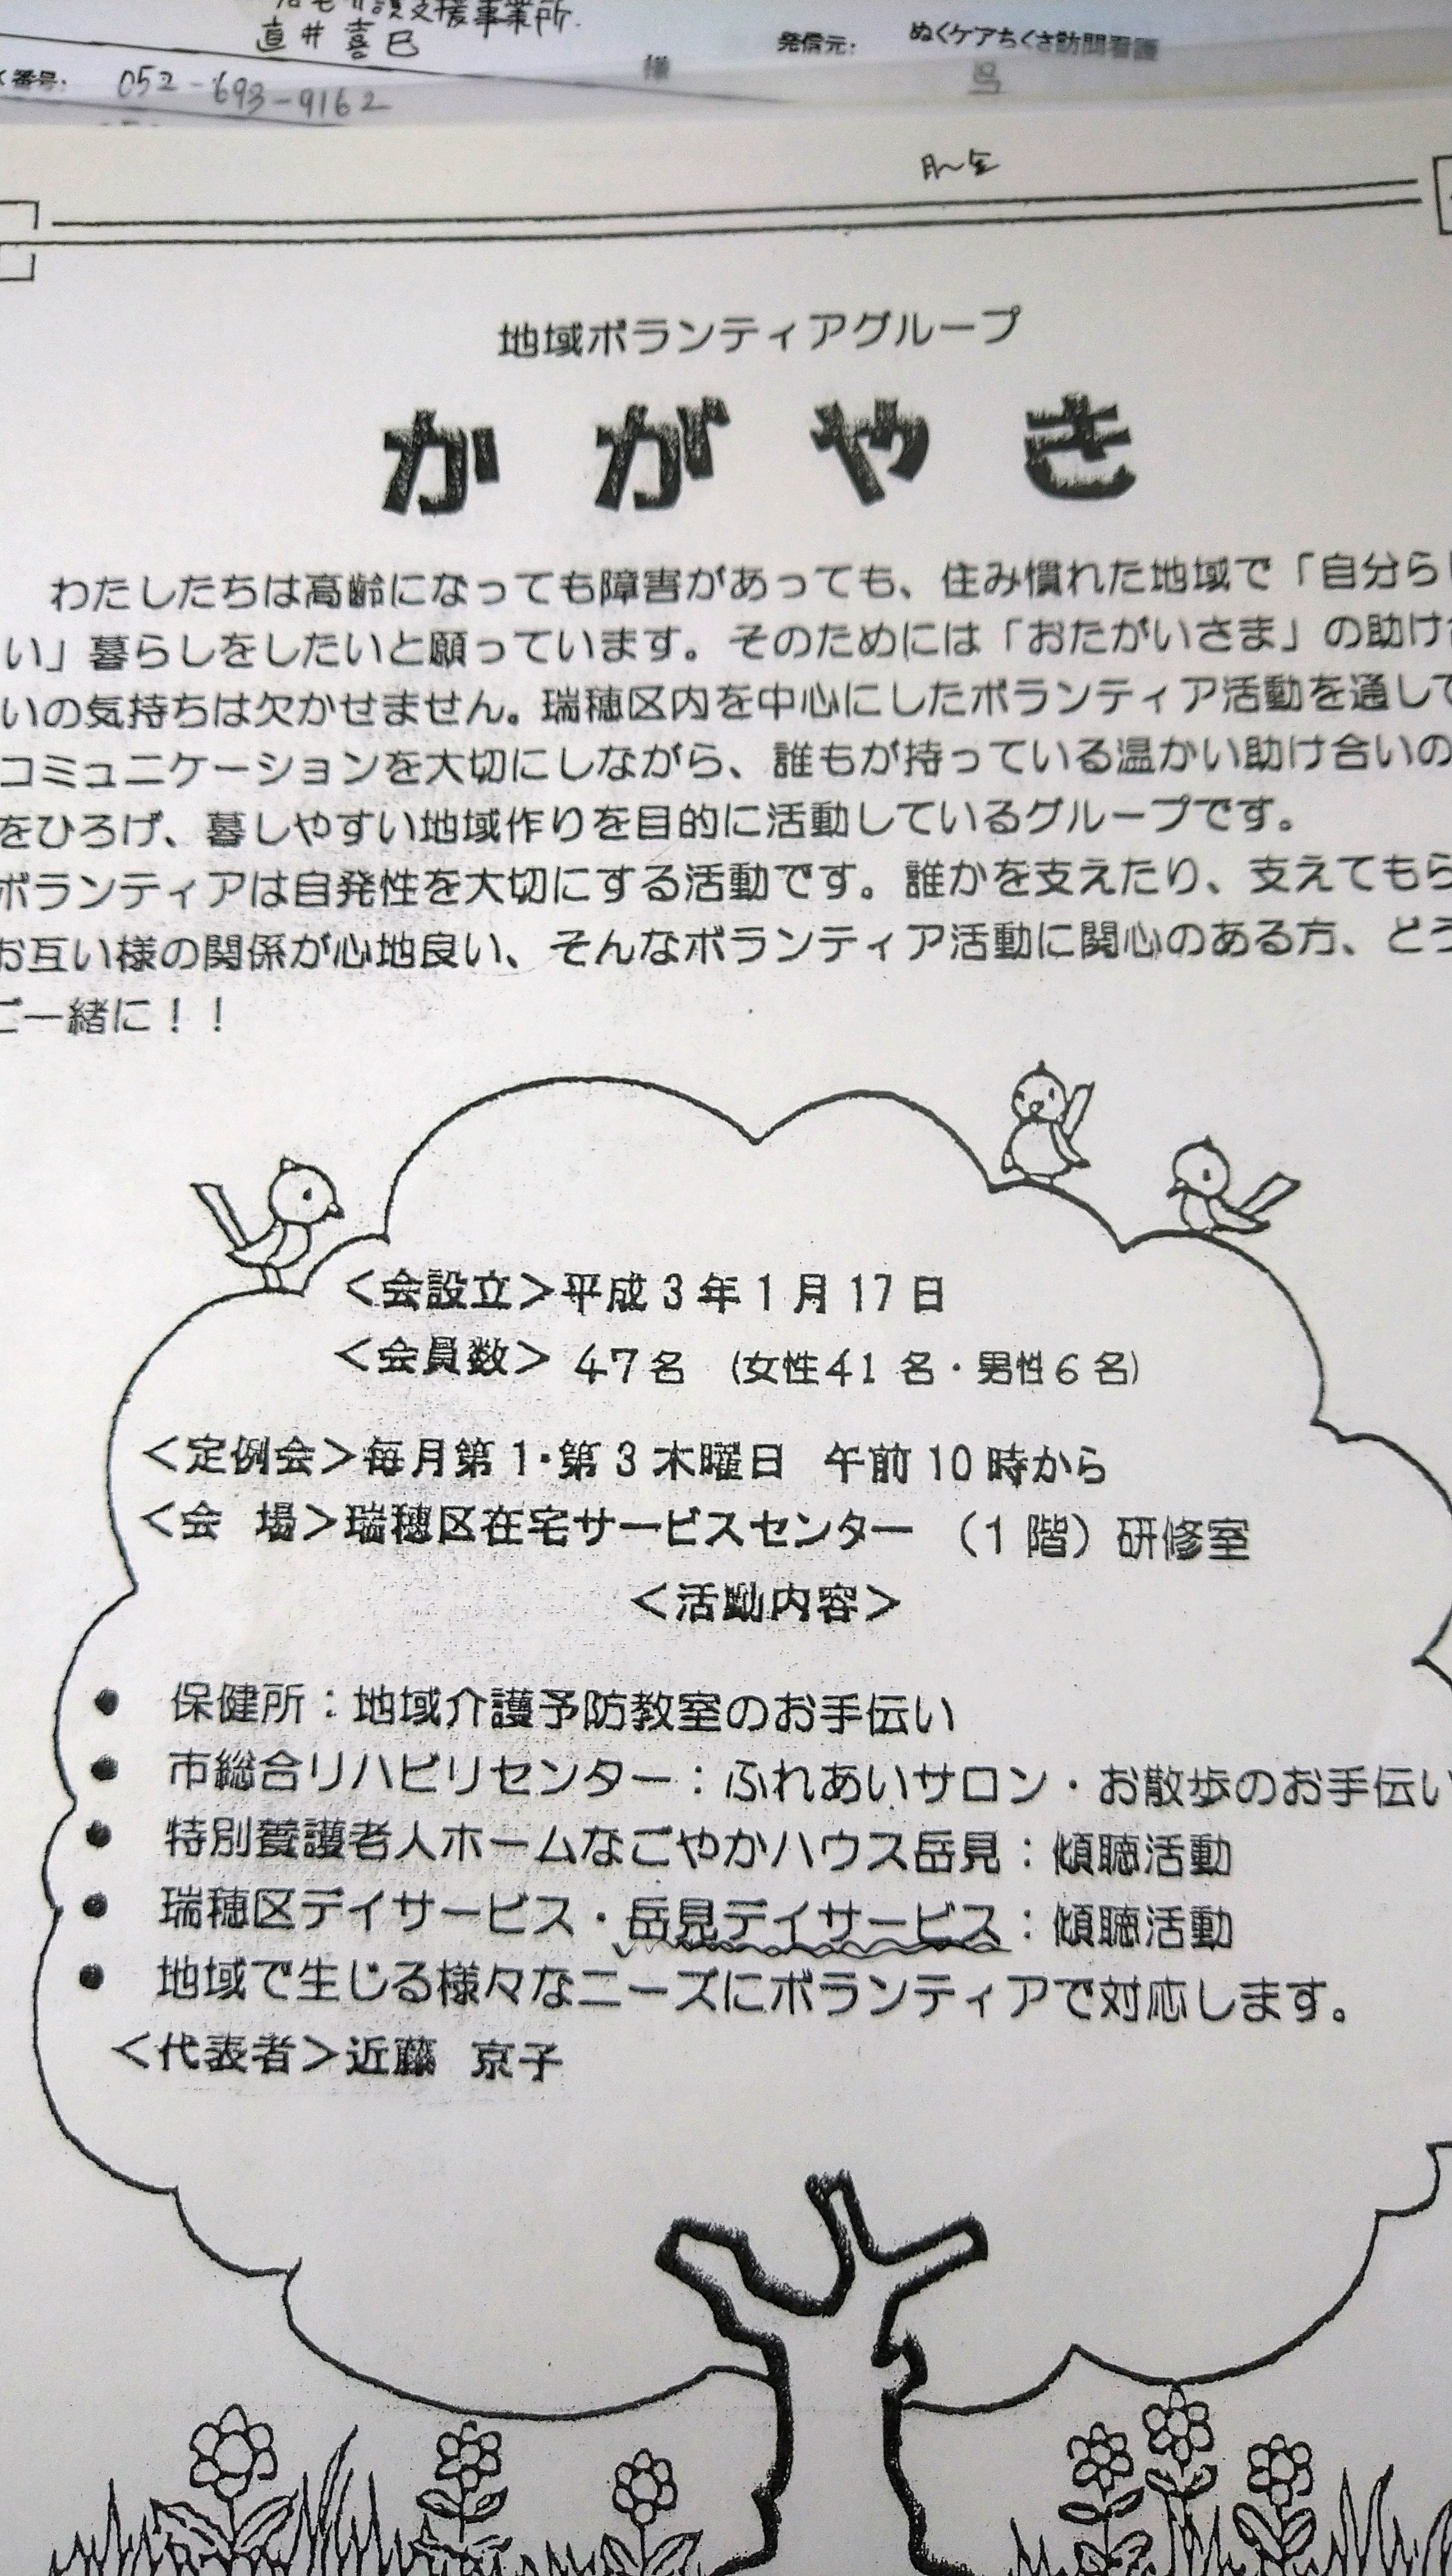 支援事業所.
直井喜巳
様
発信元: ぬくケアちくさ訪問看護
番号: 052-693-9162
月〜金
地域ボランティアグループ
かがやき
わたしたちは高齢になっても障害があっても、住み慣れた地域で「自分らし
い」暮らしをしたいと願っています。そのためには「おたがいさま」の助け
いの気持ちは欠かせません。瑞穂区内を中心にしたボランティア活動を通して
コミュニケーションを大切にしながら、誰もが持っている温かい助け合いの
をひろげ、暮しやすい地域作りを目的に活動しているグループです。
ボランティアは自発性を大切にする活動です。誰かを支えたり、支えてもら
お互い様の関係が心地良い、そんなボランティア活動に関心のある方、どう
ご一緒に！！
＜会設立＞平成3年1月17日
＜会員数＞ 47名 (女性41名・男性6名)
＜定例会＞毎月第1・第3木曜日 午前10時から
＜会 場＞瑞穂区在宅サービスセンター （1階）研修室
＜活動内容＞
● 保健所：地域介護予防教室のお手伝い
● 市総合リハビリセンター：ふれあいサロン・お散歩のお手伝い
● 特別養護老人ホームなごやかハウス岳見：傾聴活動
● 瑞穂区デイサービス・岳見デイサービス：傾聴活動
● 地域で生じる様々なニーズにボランティアで対応します。
＜代表者＞近藤 京子